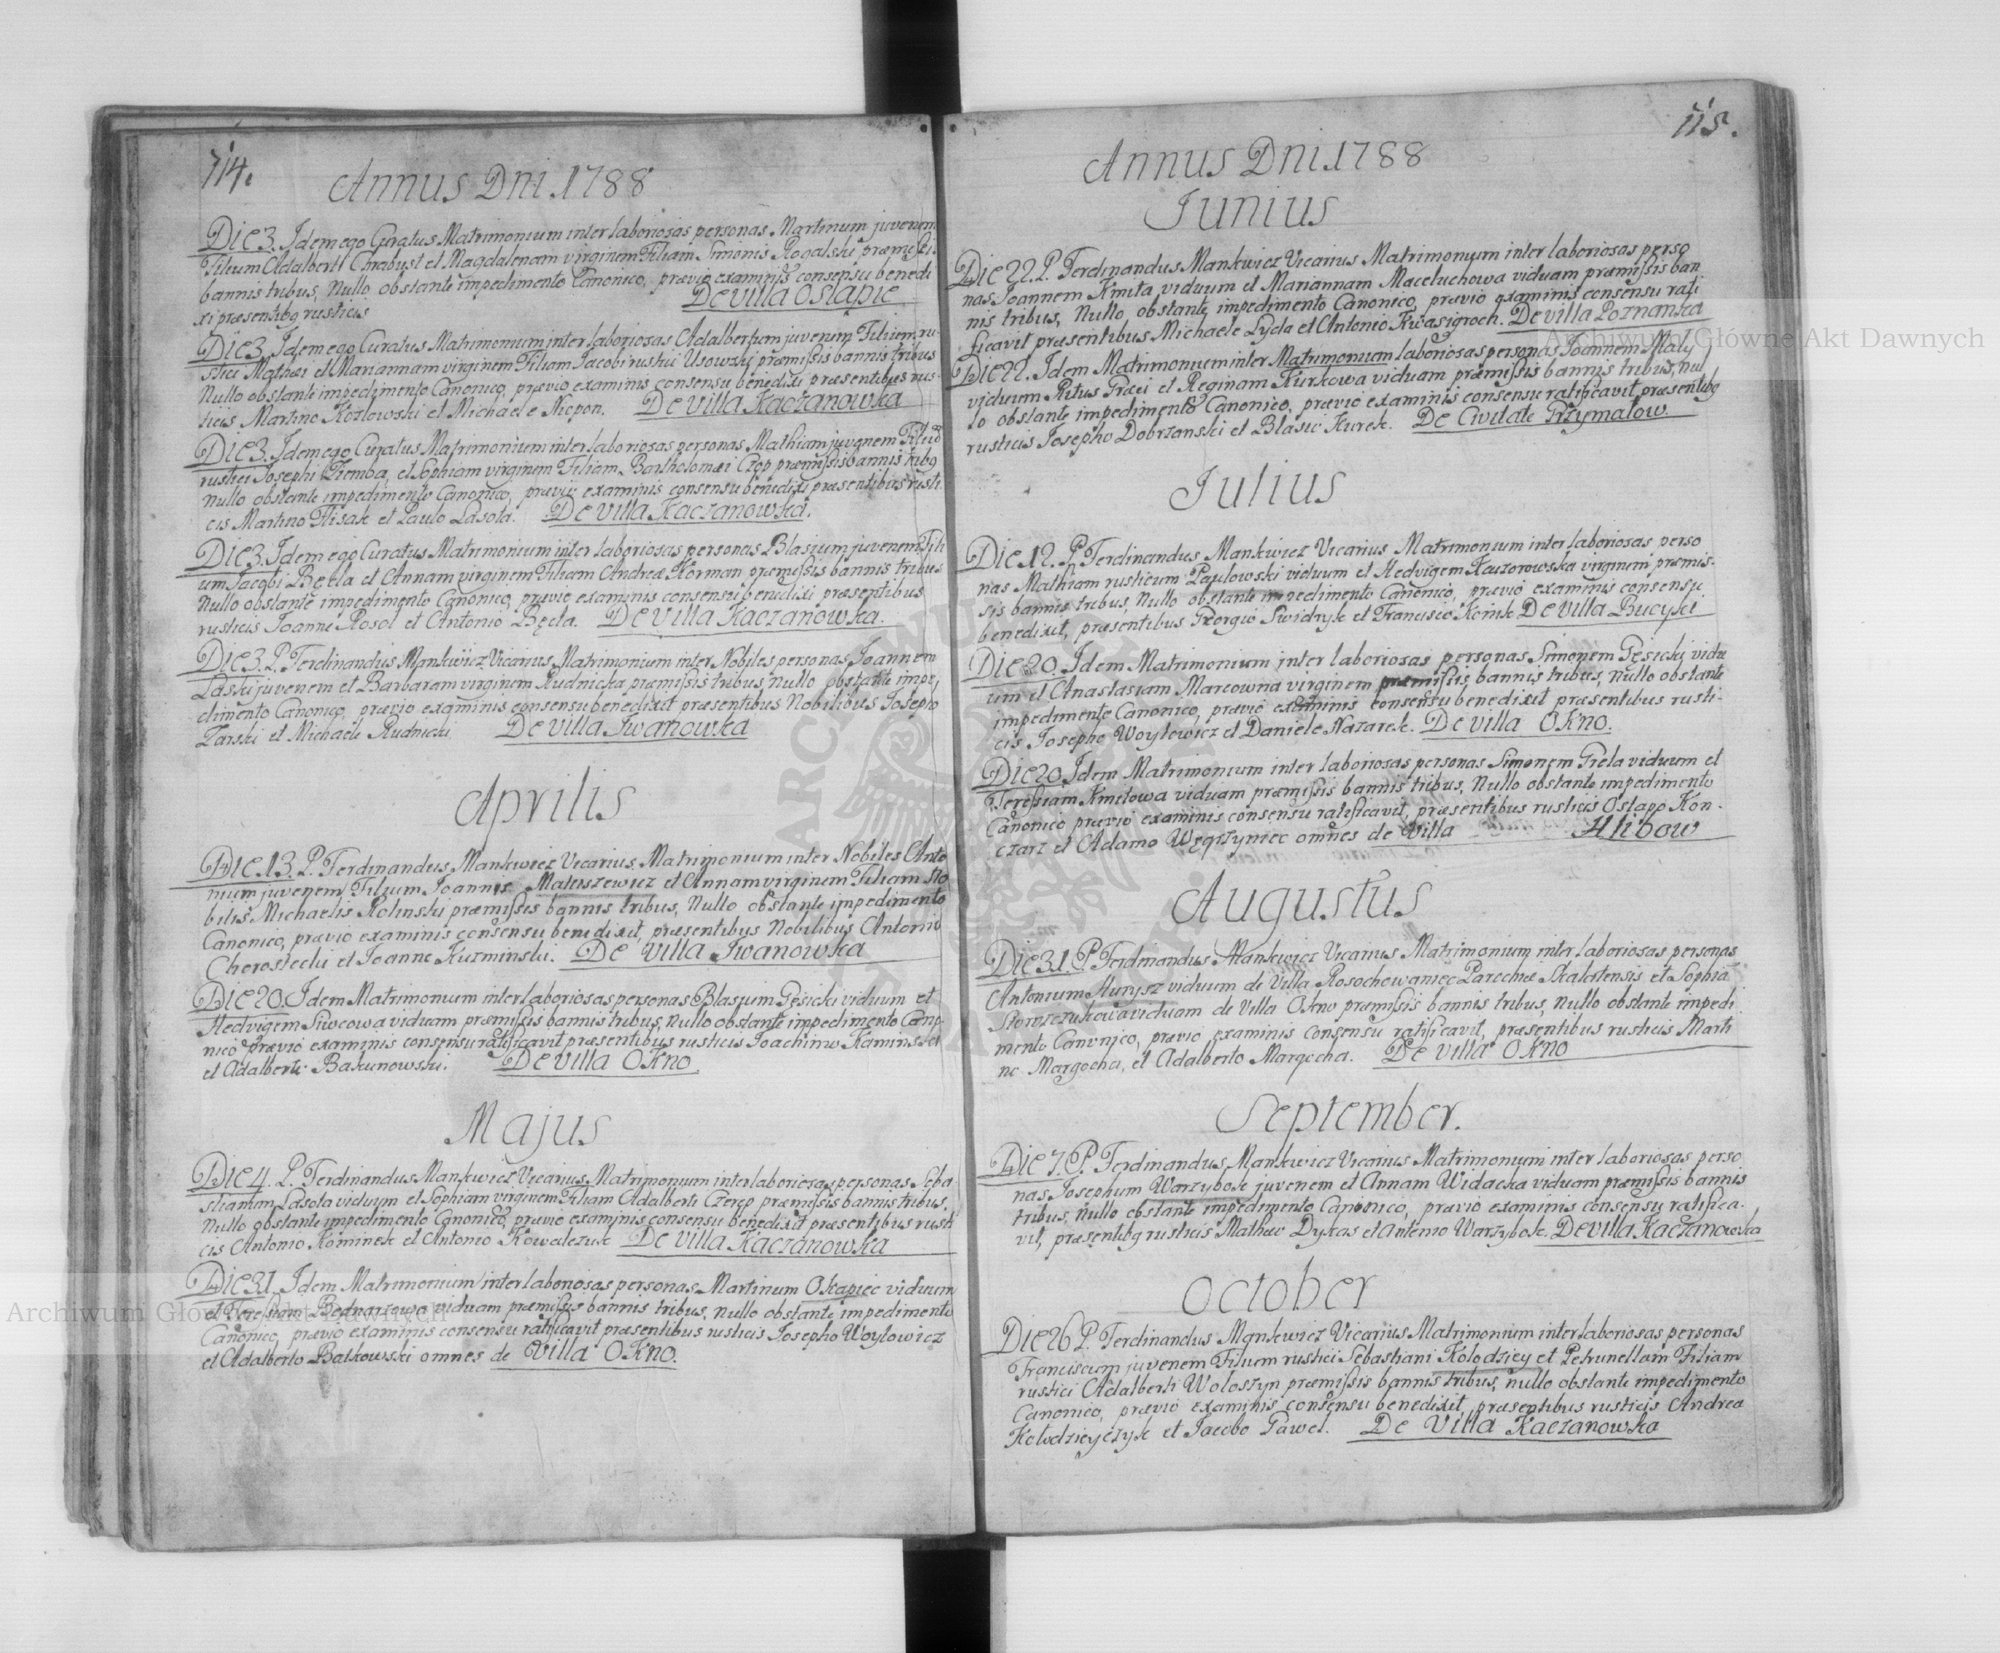 114.
Annus Dni 1788
Die 3. Idem ego Curatus Matrimonium inter laboriosas personas Martinum juvenem
Filium Adalberti Chrabust et Magdalenam virginem Filiam Simonis Rogalski præmissis
bannis tribus, Nullo obstante impedimento Canonico, prævio examinis consensu benedi
xi præsentibq rusticis De villa Ostapie
Die 3. Idem ego Curatus Matrimonium inter laboriosas Adalbertum juvenem Filium ru-
stici Mathæi et Mariannam virginem Filiam Jacobi rustici Usowski præmissis bannis tribus
Nullo obstante impedimento Canonico, prævio examinis consensu benedixi præsentibus rus-
ticis Martino Kozlowski et Michaele Niepon. De Villa Kaczanowka
Die 3. Idem ego Curatus Matrimonium inter laboriosas personas Mathiam juvenem Filiū
rustici Josephi Ziemba, et Sophiam virginem Filiam Bartholomæi Czop præmissis bannis tribq
Nullo obstante impedimento Canonico, prævio examinis consensu benedixi præsentibus rusti-
cis Martino Flisak et Paulo Lasota. De Villa Kaczanowka.
Die 3. Idem ego Curatus Matrimonium inter laboriosas personas Blasium juvenem Fili
um Jacobi Bętla et Annam virginem Filiam Andreæ Korman præmissis bannis tribus
Nullo obstante impedimento Canonico, prævio examinis consensu benedixi præsentibus
rusticis Joanne Rosol et Antonio Bętla. De Villa Kaczanowka.
Die 3. P. Ferdinandus Mankwicz Vicarius Matrimonium inter Nobiles personas Joannem
Laski juvenem et Barbaram virginem Rudnicka præmissis tribus, nullo obstante impe,
dimento Canonico, prævio examinis consensu benedixit præsentibus Nobilibus Josepho
Zarski et Michaele Rudnicki. De Villa Iwanowka
Aprilis
Die 13. P. Ferdinandus Mankwicz Vicarius Matrimonium inter Nobiles Anto
nium juvenem Filium Joannis Mateuszewicz et Annam virginem Filiam No
bilis Michaelis Rolinski præmissis bannis tribus, Nullo obstante impedimento
Canonico, prævio examinis consensu benedixit, præsentibus Nobilibus Antonio
Chorostecki et Joanne Kuzminski. De Villa Iwanowka
Die 20. Idem Matrimonium inter laboriosas personas Blasium Gęsicki viduum et
Hedvigem Siwcowa viduam præmissis bannis tribus, Nullo obstante impedimento Cano-
nico prævio examinis consensu ratificavit præsentibus rusticis Joachimo Kaminski
et Adalberto Bakunowski. De Villa Okno.
Majus
Die 4. P. Ferdinandus Mankwicz Vicarius Matrimonium inter laboriosas personas Seba-
stianum Lasota viduum et Sophiam virginem Filiam Adalberti Czerep præmissis bannis tribus,
Nullo obstante impedimento Canonico, prævio examinis consensu benedixit præsentibus rusti
cis Antonio Kominek et Antonio Kowalczuk De Villa Kaczanowka
Die 31. Idem Matrimonium inter laboriosas personas Martinum Okapiec viduum
et Teressiam Bednarzowa viduam præmissis bannis tribus, nullo obstante impedimento
Canonico, prævio examinis consensu ratificavit præsentibus rusticis Josepho Woylowicz
et Adalberto Batkowski omnes de Villa Okno.
115.
Annus Dni 1788
Junius
Die 22. P. Ferdinandus Mankwicz Vicarius Matrimonium inter laboriosas perso
nas Joannem Kmita viduum et Mariannam Maceluchowa viduam præmissis ban
nis tribus, Nullo obstante impedimento Canonico, prævio examinis consensu rati
ficavit præsentibus Michaele Lyda et Antonio Kwasigroch. De villa Poznanka
Die 22. Idem Matrimonium inter Matrimonium laboriosas personas Joannem Maly
viduum Ritus Græci et Reginam Kurkowa viduam præmissis bannis tribus, nul
lo obstante impedimento Canonico, prævio examinis consensu ratificavit præsentibq
rusticis Josepho Dobrzanski et Blasio Kurek. De Civitate Grzymalow.
Julius
Die 12. P. Ferdinandus Mankwicz Vicarius Matrimonium inter laboriosas perso
nas Mathiam rusticum Paulowski viduum et Hedvigem Kaczorowska virginem præmis-
sis bannis tribus, Nullo obstante impedimento Canonico, prævio examinis consensu
benedixit, præsentibus Georgio Swidryk et Francisco Konik De Villa Bucyki
Die 20. Idem Matrimonium inter laboriosas personas Simonem Gęsicki vidu
um et Anastasiam Marcowna virginem præmissis bannis tribus, nullo obstante
impedimento Canonico, prævio examinis consensu benedixit præsentibus rusti-
cis Josepho Woylewicz et Daniele Nazarek. De Villa Okno.
Die 20. Idem Matrimonium inter laboriosas personas Simonem Grela viduum et
Teressiam Kmitowa viduam præmissis bannis tribus, Nullo obstante impedimento
Canonico prævio examinis consensu ratificavit, præsentibus rusticis Ostapo Kon-
czarz et Adamo Węgrzyniec omnes de Villa Hlibow
Augustus
Die 31. P. Ferdinandus Mankwicz Vicarius Matrimonium inter laboriasas personas
Antonium Hurysz viduum de Villa Rosochowaniec Parochiæ Skalatensis et Sophia
viduam de Villa Okno præmissis bannis tribus, Nullo obstante impedi
mento Canonico, prævio examinis consensu ratificavit, præsentibus rusticis Marti
no Margocha, et Adalberto Margocha. De Villa Okno
September.
Die 7. P. Ferdinandus Mankwicz Vicarius Matrimonium inter laboriosas perso
nas Josephum Warzybok juvenem et Annam Widacka viduam præmissis bannis
tribus, Nullo obstante impedimento Canonico, prævio examinis consensu ratifica-
vit, præsentibq rusticis Mathæo Dykas et Antonio Warzybok. De Villa Kaczanowka
October
Die 26. P. Ferdinandus Mankwicz Vicarius Matrimonium inter laboriosas personas
Franciscum juvenem Filium rustici Sebastiani Kolodziey et Petrunellam Filiam
rustici Adalberti Woloszyn præmissis bannis tribus, nullo obstante impedimento
Canonico, prævio examinis consensu benedixit, præsentibus rusticis Andrea
Kolodzieyczyk et Jacobo Gawel. De Villa Kaczanowka
Archiwum Główne Akt Dawnych
Archiwum Główne Akt Dawnych